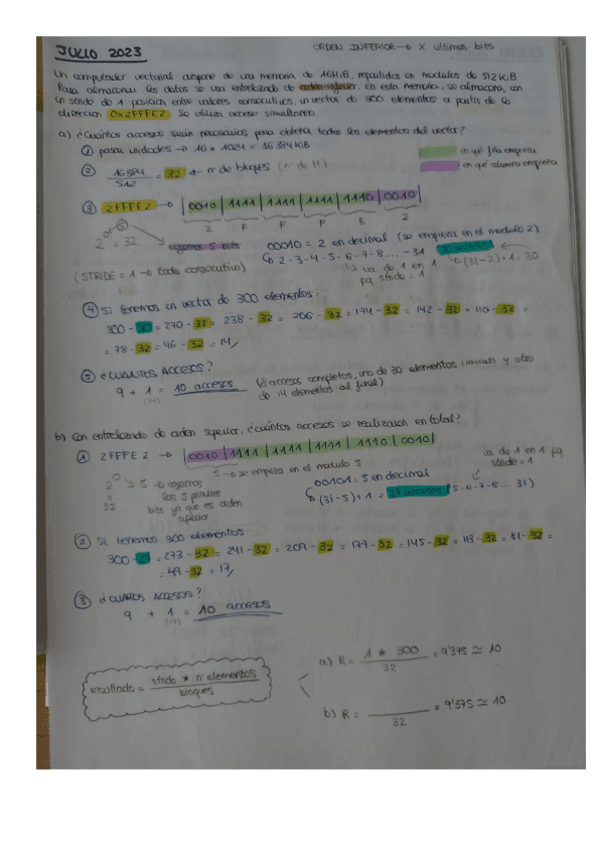 JULIO 2023
ORDEN INFERIOR → X ultimos bits
Un computador vectorial dispone de una memoria de 16MiB, repartidos en modulos de 512 KiB.
Para almacenar los datos se usa entrelazado de orden inferior. En esta memoria, se almacena, con
un stride de 1 posicion entre valores consecutivos, un vector de 300 elementos a partir de la
direccion 0x2FFFE2. Se utiliza acceso simultaneo.
a) ¿Cuántos accesos serán necesarios para obtener todos los elementos del vector?
① pasar unidades → 16 * 1024 = 16384 KiB
en qué fila empieza
en qué columna empieza
② 16384 / 512 = 32 ← nº de bloques (nº de M)
③ 2FFFE2 → | 0010 | 1111 | 1111 | 1111 | 1110 | 0010 |
2 F F F E 2
2^5 = 32
cogemos 5 bits
00010 = 2 en decimal (se empieza en el modulo 2)
2-3-4-5-6-7-8... -31
(31-2)+1 = 30
va de 1 en 1
pq stride = 1
(STRIDE = 1 → todo consecutivo)
④ Si tenemos un vector de 300 elementos:
300-30 = 270-32 = 238-32 = 206-32 = 174-32 = 142-32 = 110-32 =
= 78-32 = 46-32 = 14
⑤ ¿CUANTOS ACCESOS?
9 + 1 = 10 accesos
(14)
accesos completos, uno de 30 elementos (inicial) y otro
de 14 elementos al final)
b) Con entrelazado de orden superior, ¿cuántos accesos se realizarían en total?
① 2FFFE2 → | 0010 | 1111 | 1111 | 1111 | 1110 | 0010 |
va de 1 en 1 pq
stride = 1
5 → se empieza en el modulo 5
2 → 5 → cogemos
los 5 primeros
bits ya que es orden
superior
32
00101 = 5 en decimal
(31-5)+1 =
(5-6-7-8-... 31)
② Si tenemos 300 elementos
300-27 = 273-32 = 241-32 = 209-32 = 177-32 = 145-32 = 113-32 = 81-32 =
= 49-32 = 17
③ ¿CUANTOS ACCESOS?
9 + 1 = 10 accesos
(17)
resultado = stride * nº elementos / bloques
a) R = 1 * 300 / 32 = 9'375 ≃ 10
b) R = / 32 = 9'375 ≃ 10